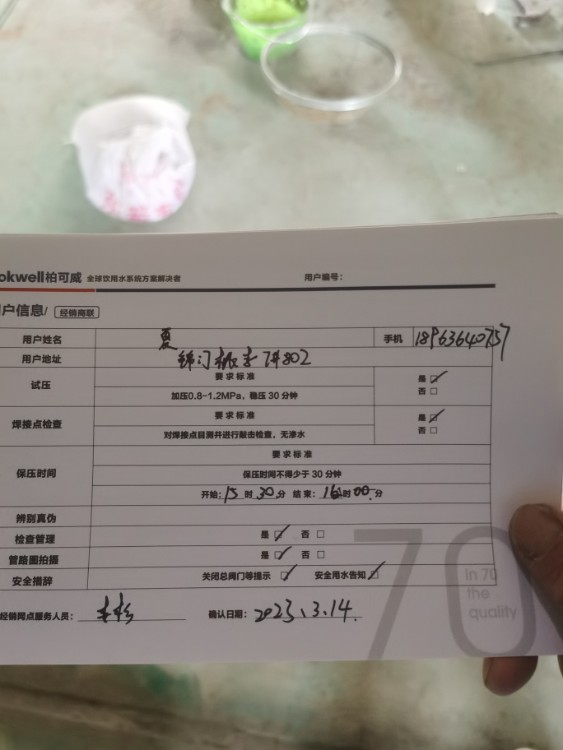 okwell柏可威 全球饮用水系统方案解决者 用户编号：
户信息/ 经销商联
用户姓名 夏 手机 18963640757
用户地址 锦门 7#802
试压 要求标准 是 ☑
加压0.8-1.2MPa，稳压 30 分钟 否 □
焊接点检查 要求标准 是 ☑
对焊接点目测并进行敲击检查，无渗水 否 □
保压时间 要求标准
保压时间不得少于 30 分钟
开始：15 时 30 分 结束：16 时 00 分
辨别真伪
检查管理 是 ☑ 否 □
管路图拍摄 是 ☑ 否 □
安全措辞 关闭总阀门等提示 ☑ 安全用水告知 ☑
经销网点服务人员： 确认日期：2023、3.14.
70
In 70
the
quality